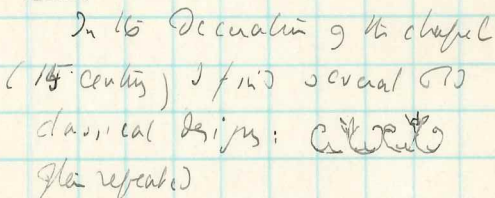 In the Decoration of the chapel
(15 century) I find several old
classical designs:
often repeated